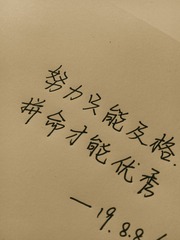 努力只能及格.
拼命才能优秀
—19.8.8